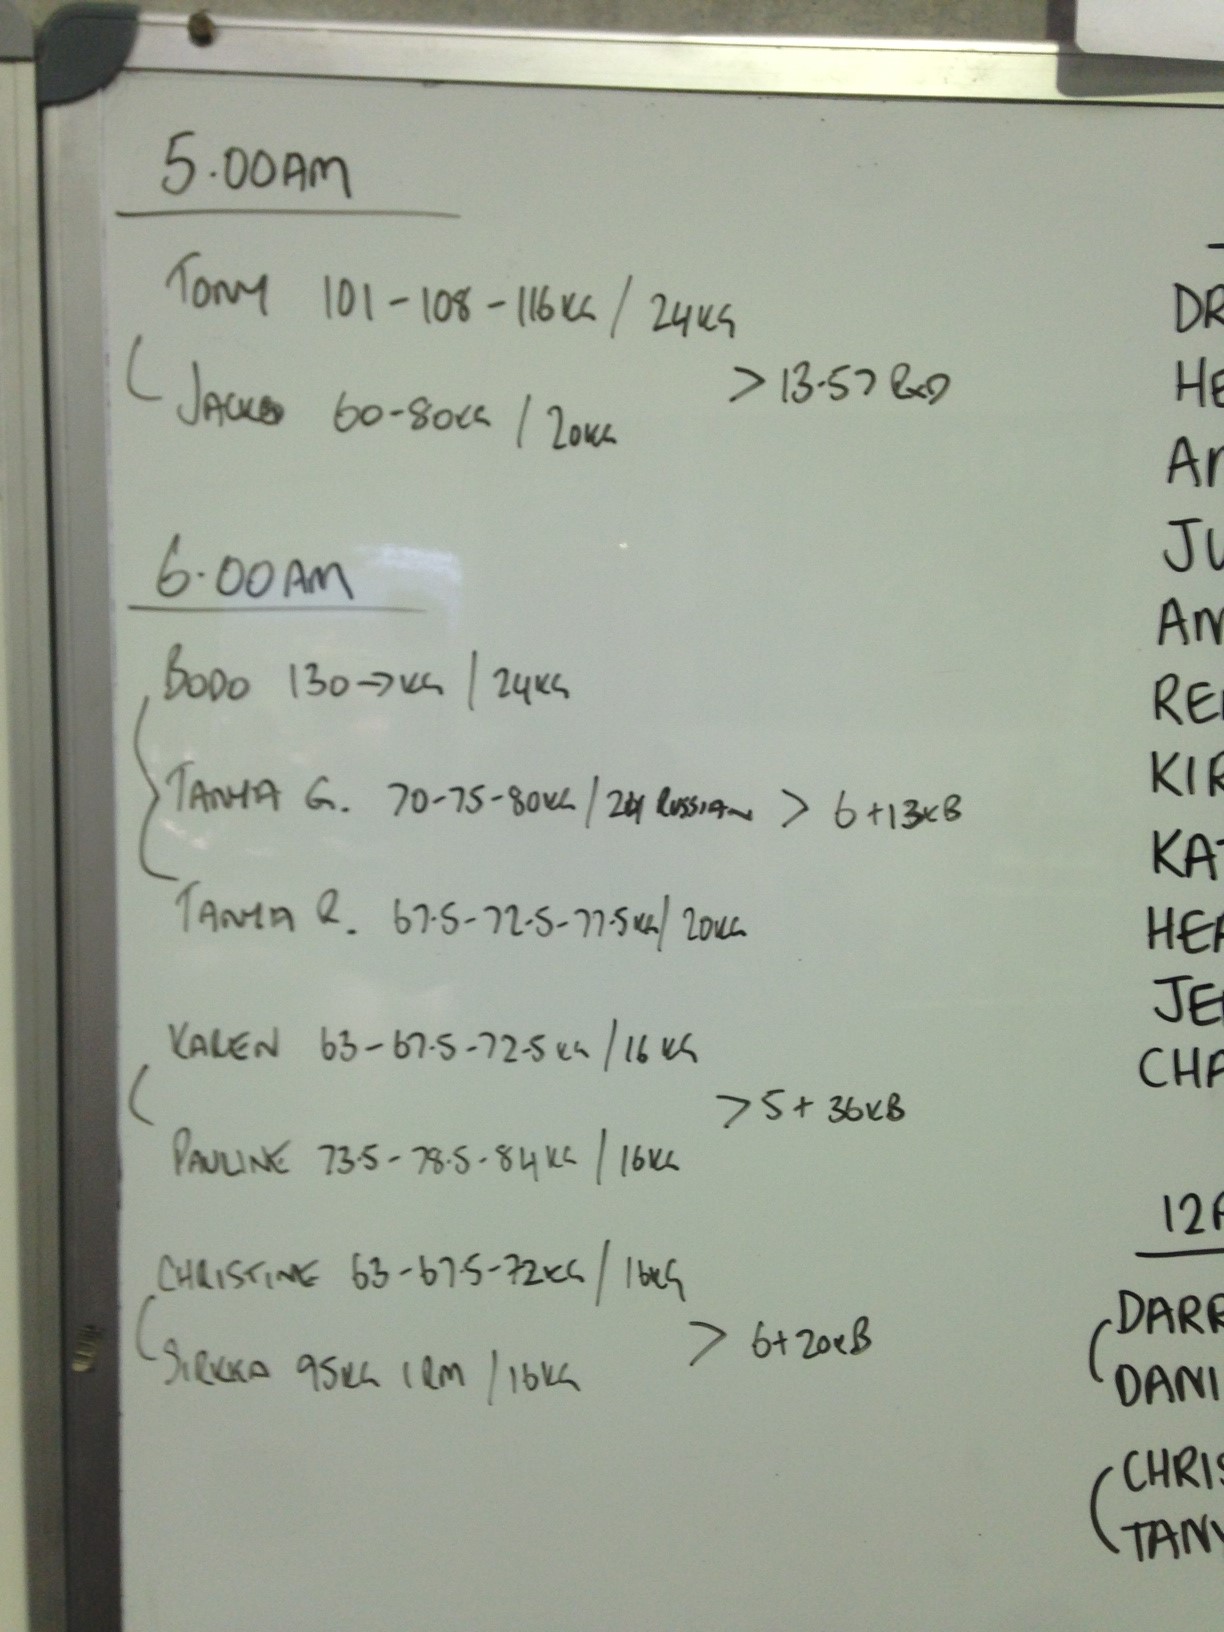 5.00AM
TONY 101-108-116KG / 24KG
JACKO 60-80KG / 20KG
> 13.57 RxD
6.00AM
BODO 130→KG / 24KG
TANYA G. 70-75-80KG / 24 RUSSIAN > 6+13KB
TANYA R. 67.5-72.5-77.5KG / 20KG
KAREN 63-67.5-72.5KG / 16KG
> 5+36KB
PAULINE 73.5-78.5-84KG / 16KG
CHRISTINE 63-67.5-72KG / 16KG
> 6+20KB
SIRKKA 95KG 1RM / 16KG
DR
HE
JU
KIR
KAT
HEA
CHA
12A
DARR
DANI
CHRIS
TANY